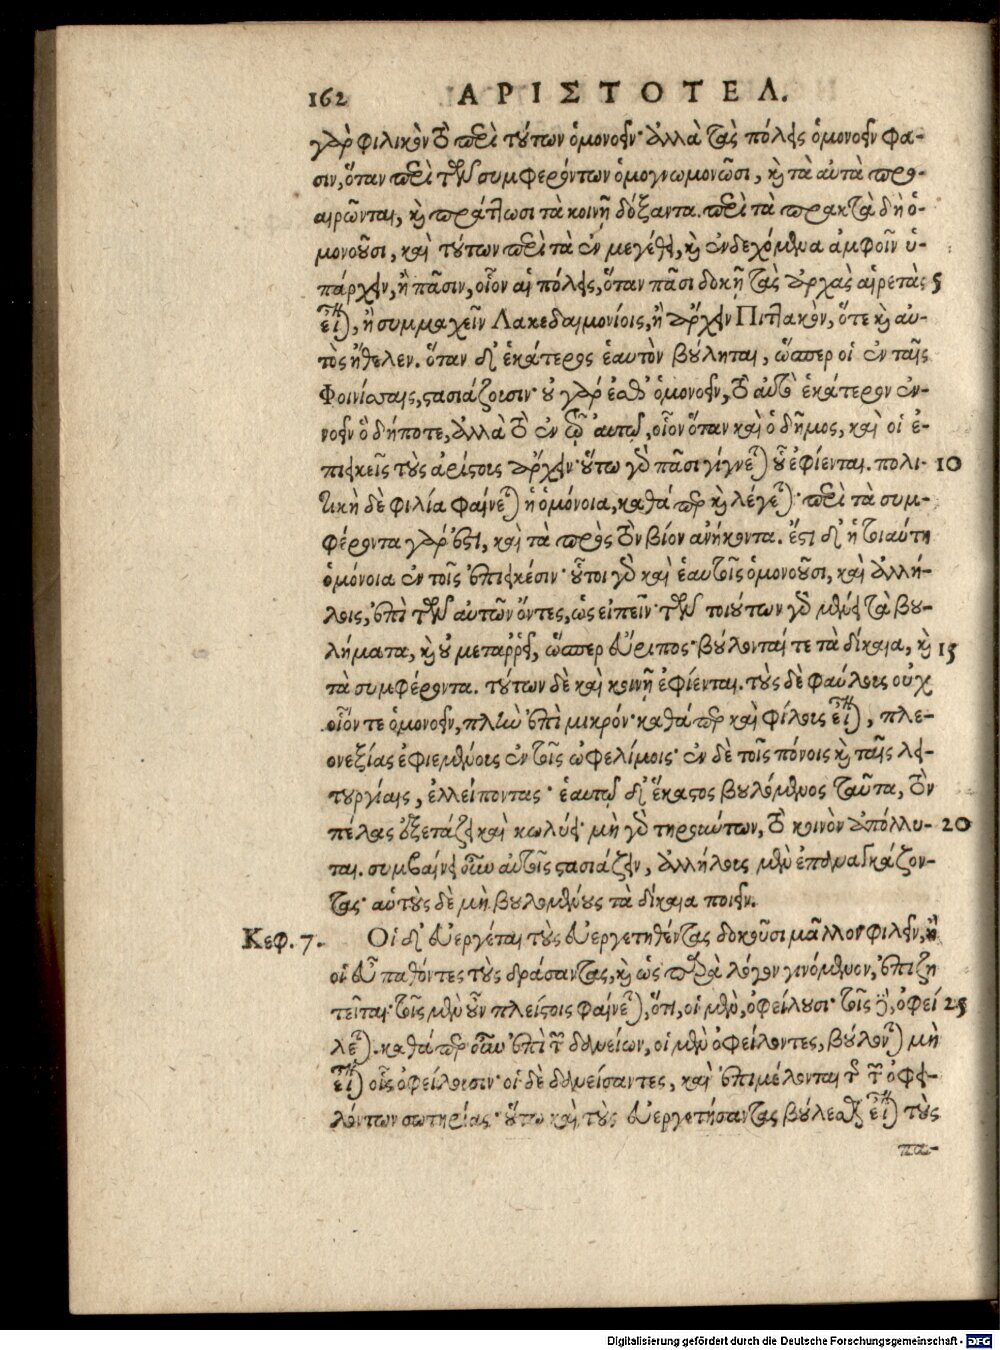 162 ΑΡΙΣΤΟΤΕΛ.
γὰρ φιλικὸν τὸ περὶ τούτων ὁμονοεῖν· ἀλλὰ τὰς πόλεις ὁμονοεῖν φα-
σιν, ὅταν περὶ τῶν συμφερόντων ὁμογνωμονῶσι, καὶ τὰ αὐτὰ προ-
αιρῶνται, καὶ πράττωσι τὰ κοινῇ δόξαντα. περὶ τὰ πρακτὰ δὴ ὁ-
μονοοῦσι, καὶ τούτων περὶ τὰ ἐν μεγέθει, καὶ ἐνδεχόμενα ἀμφοῖν ὑ-
πάρχειν, ἢ πᾶσιν, οἷον αἱ πόλεις, ὅταν πᾶσι δοκῇ τὰς ἀρχὰς αἱρετὰς 5
εἶναι, ἢ συμμαχεῖν Λακεδαιμονίοις, ἢ ἄρχειν Πιττακὸν, ὅτε καὶ αὐ-
τὸς ἤθελεν. ὅταν δ' ἑκάτερος ἑαυτὸν βούληται, ὥσπερ οἱ ἐν ταῖς
Φοινίσσαις, στασιάζουσιν· οὐ γάρ ἐσθ' ὁμονοεῖν, τὸ αὐτὸ ἑκάτερον ἐν-
νοεῖν ὃ δήποτε, ἀλλὰ τὸ ἐν τῷ αὐτῷ, οἷον ὅταν καὶ ὁ δῆμος, καὶ οἱ ἐ-
πιεικεῖς τοὺς ἀρίστους ἄρχειν· οὕτω γὰρ πᾶσι γίγνεται οὗ ἐφίενται. πολι- 10
τικὴ δὲ φιλία φαίνεται ἡ ὁμόνοια, καθάπερ καὶ λέγεται· περὶ τὰ συμ-
φέροντα γάρ ἐστι, καὶ τὰ πρὸς τὸν βίον ἀνήκοντα. ἔστι δ' ἡ τοιαύτη
ὁμόνοια ἐν τοῖς ἐπιεικέσιν· οὗτοι γὰρ καὶ ἑαυτοῖς ὁμονοοῦσι, καὶ ἀλλή-
λοις, ἐπὶ τῶν αὐτῶν ὄντες, ὡς εἰπεῖν· τῶν τοιούτων γὰρ μένει τὰ βου-
λήματα, καὶ οὐ μεταῤῥεῖ, ὥσπερ εὔριπος· βούλονταί τε τὰ δίκαια, καὶ 15
τὰ συμφέροντα. τούτων δὲ καὶ κοινῇ ἐφίενται. τοὺς δὲ φαύλους οὐχ
οἷόν τε ὁμονοεῖν, πλὴν ἐπὶ μικρόν· καθάπερ καὶ φίλους εἶναι, πλε-
ονεξίας ἐφιεμένους ἐν τοῖς ὠφελίμοις· ἐν δὲ τοῖς πόνοις καὶ ταῖς λει-
τουργίαις, ἐλλείποντας· ἑαυτῷ δ' ἕκαστος βουλόμενος ταῦτα, τὸν
πέλας ἐξετάζει καὶ κωλύει· μὴ γὰρ τηρούντων, τὸ κοινὸν ἀπόλλυ- 20
ται. συμβαίνει οὖν αὐτοῖς στασιάζειν, ἀλλήλους μὲν ἐπαναγκάζον-
τας· αὐτοὺς δὲ μὴ βουλομένους τὰ δίκαια ποιεῖν.
Κεφ. 7. Οἱ δ' εὐεργέται τοὺς εὐεργετηθέντας δοκοῦσι μᾶλλον φιλεῖν, ἢ
οἱ εὖ παθόντες τοὺς δράσαντας, καὶ ὡς παρὰ λόγον γινόμενον, ἐπιζη
τεῖται· τοῖς μὲν οὖν πλείστοις φαίνεται, ὅτι, οἱ μὲν, ὀφείλουσι· τοῖς δὲ, ὀφεί 25
λεται. καθάπερ οὖν ἐπὶ τῶν δανείων, οἱ μὲν ὀφείλοντες, βούλονται μὴ
εἶναι οἷς ὀφείλουσιν· οἱ δὲ δανείσαντες, καὶ ἐπιμέλονται τῆς τῶν ὀφει-
λόντων σωτηρίας· οὕτω καὶ τοὺς εὐεργετήσαντας βούλεσθαι εἶναι τοὺς
πα-
Digitalisierung gefördert durch die Deutsche Forschungsgemeinschaft - DFG